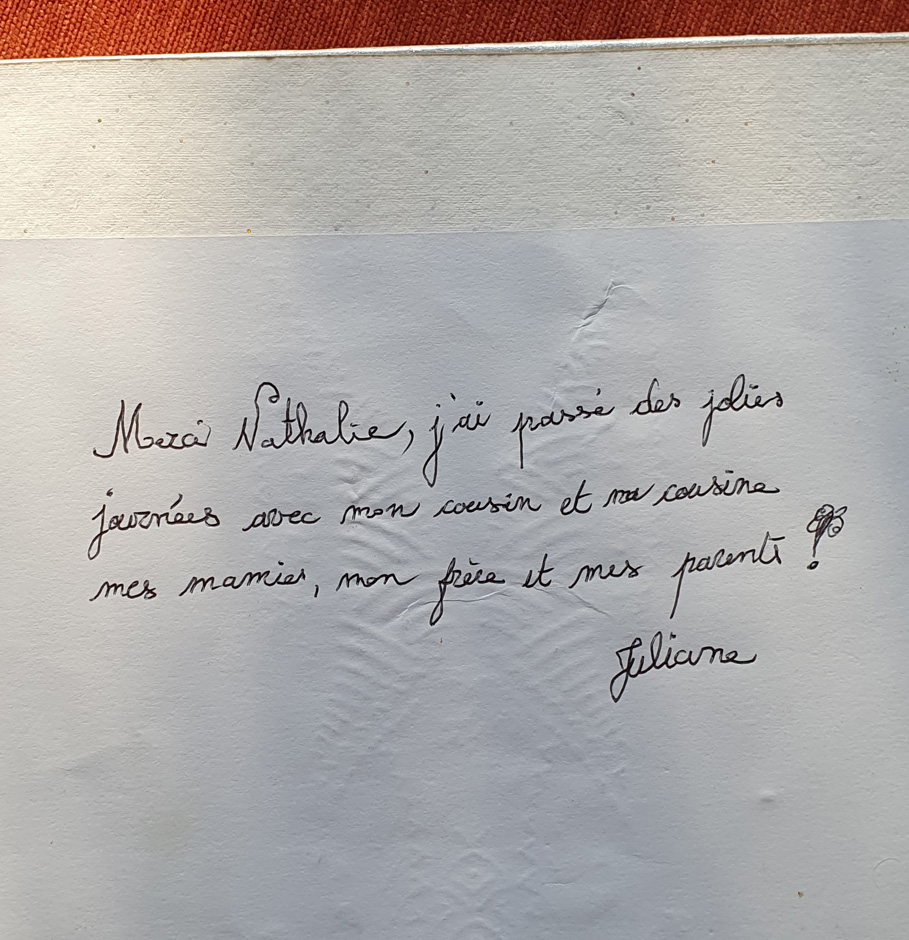 Merci Nathalie, j'ai passé des jolies
journées avec mon cousin et ma cousine
mes mamies, mon frère et mes parents !
Juliane